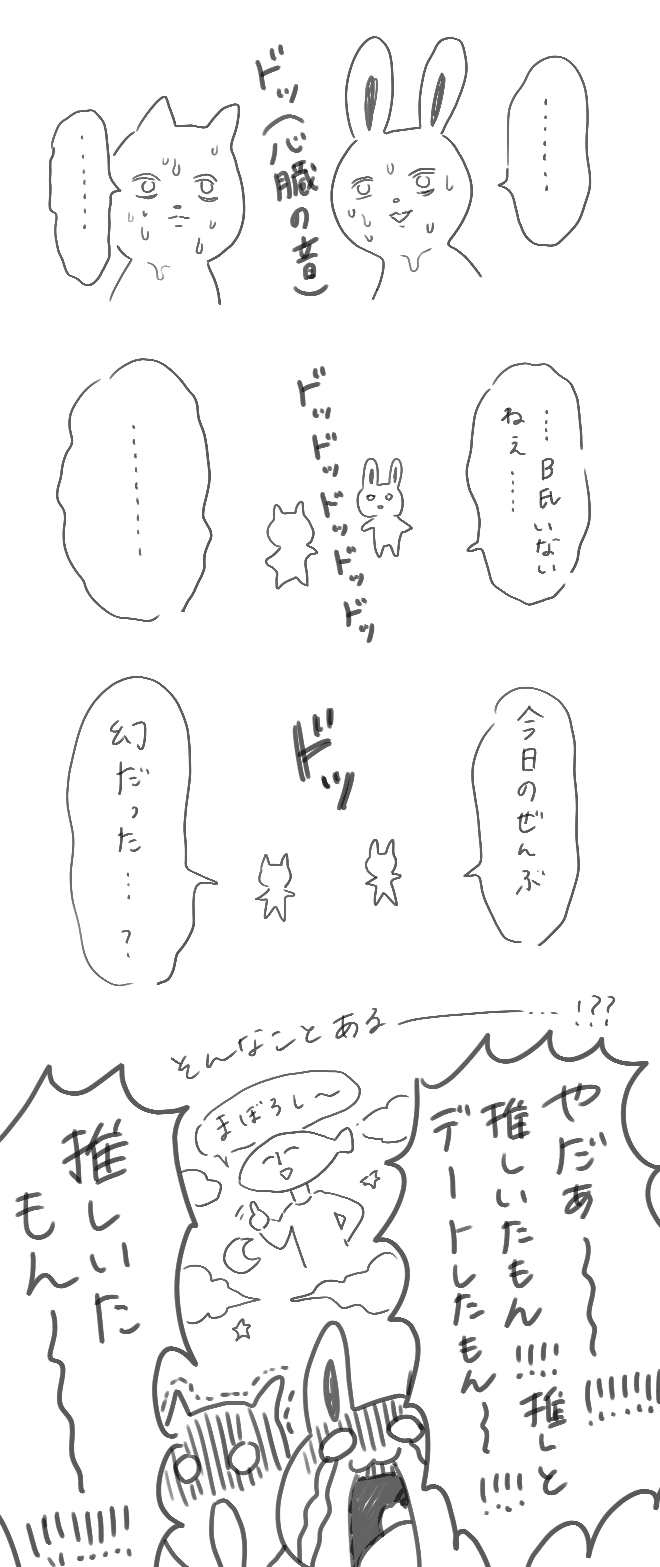 ………
ドッ(心臓の音)
………
……B氏いない
ねぇ……
ドッドッドッドッドッ
…………
今日のぜんぶ
ドッ
幻だった…?
そんなことある――……!??
やだぁ〜〜!!!!!!
推しいたもん!!!!推しと
デートしたもん〜!!!!
まぼろし〜
推しいた
もん〜〜!!!!!!!